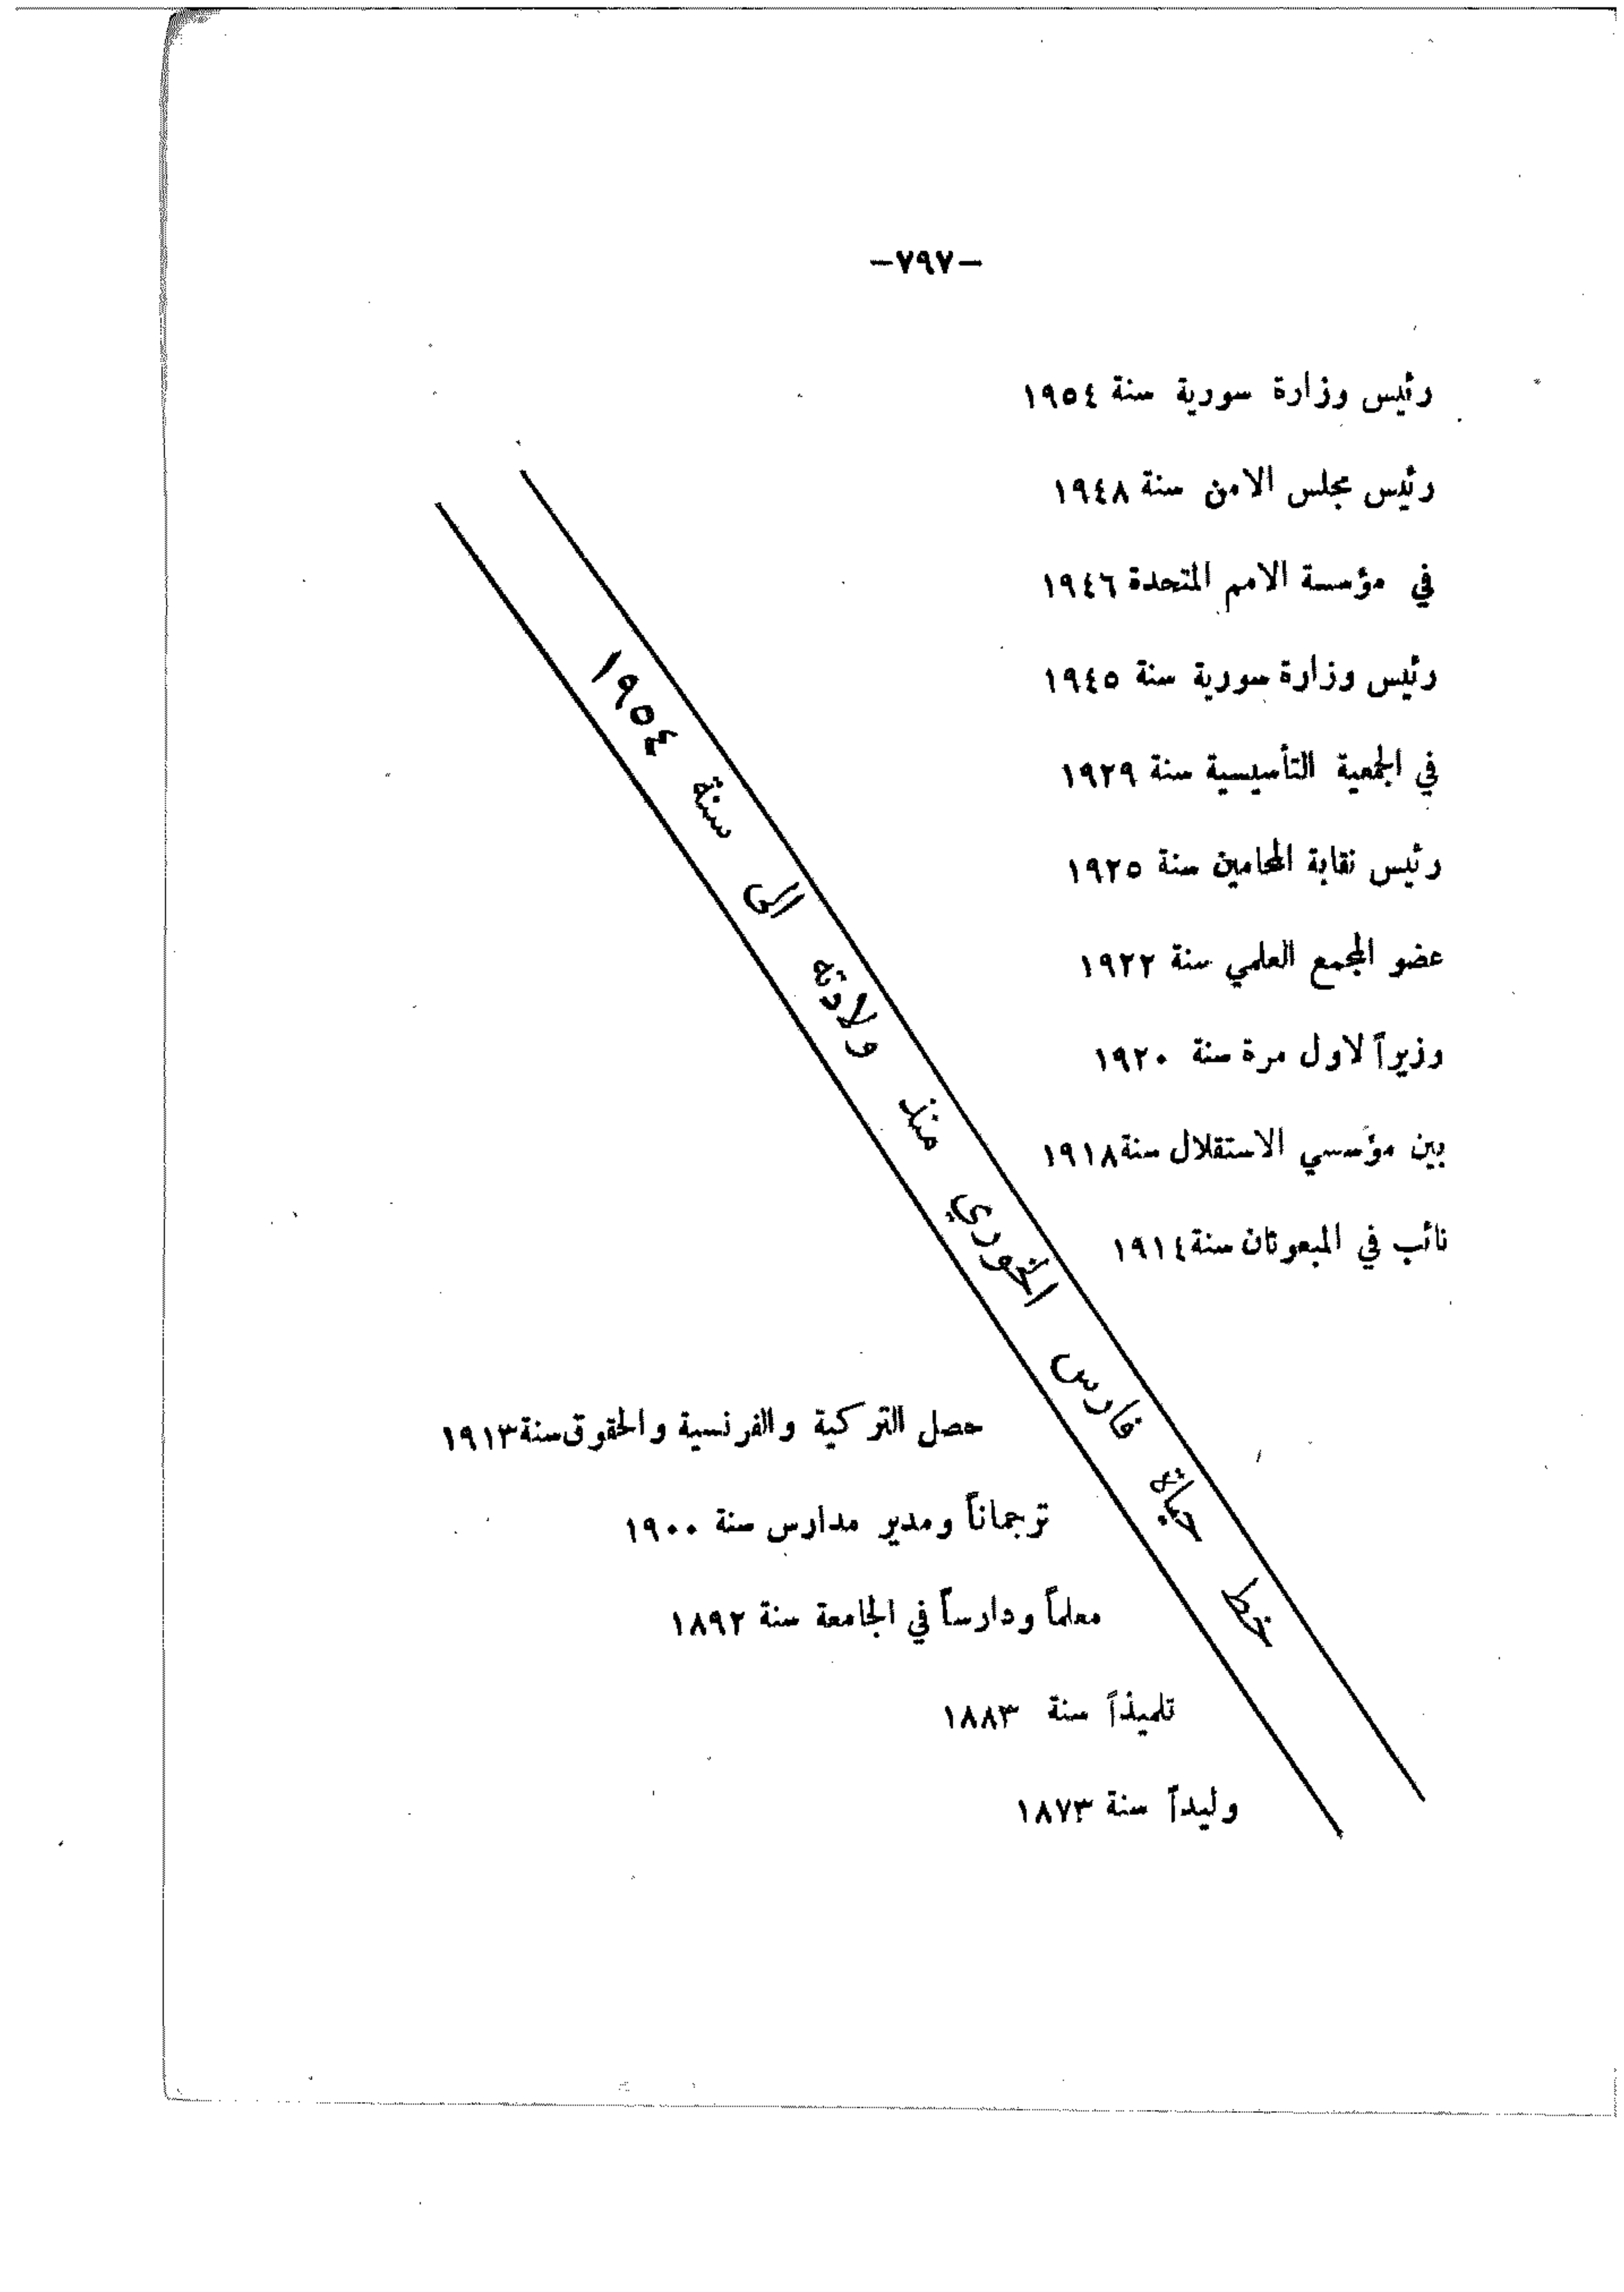 -٧٩٧-
رئيس وزارة سورية سنة ١٩٥٤
رئيس مجلس الامن سنة ١٩٤٨
في مؤسسة الامم المتحدة ١٩٤٦
رئيس وزارة سورية سنة ١٩٤٥
في الجمعية التأسيسية سنة ١٩٢٩
رئيس نقابة المحامين سنة ١٩٢٥
عضو المجمع العلمي سنة ١٩٢٢
وزيراً لاول مرة سنة ١٩٢٠
بين مؤسسي الاستقلال سنة ١٩١٨
نائب في المبعوثان سنة ١٩١٤
خط حياة فارس الخوري منذ ولادته الى سنة ١٩٥٤
حصل التركية والفرنسية والحقوق سنة ١٩١٣
ترجماناً ومدير مدارس سنة ١٩٠٠
معلماً ودارساً في الجامعة سنة ١٨٩٢
تلميذاً سنة ١٨٨٣
وليداً سنة ١٨٧٣